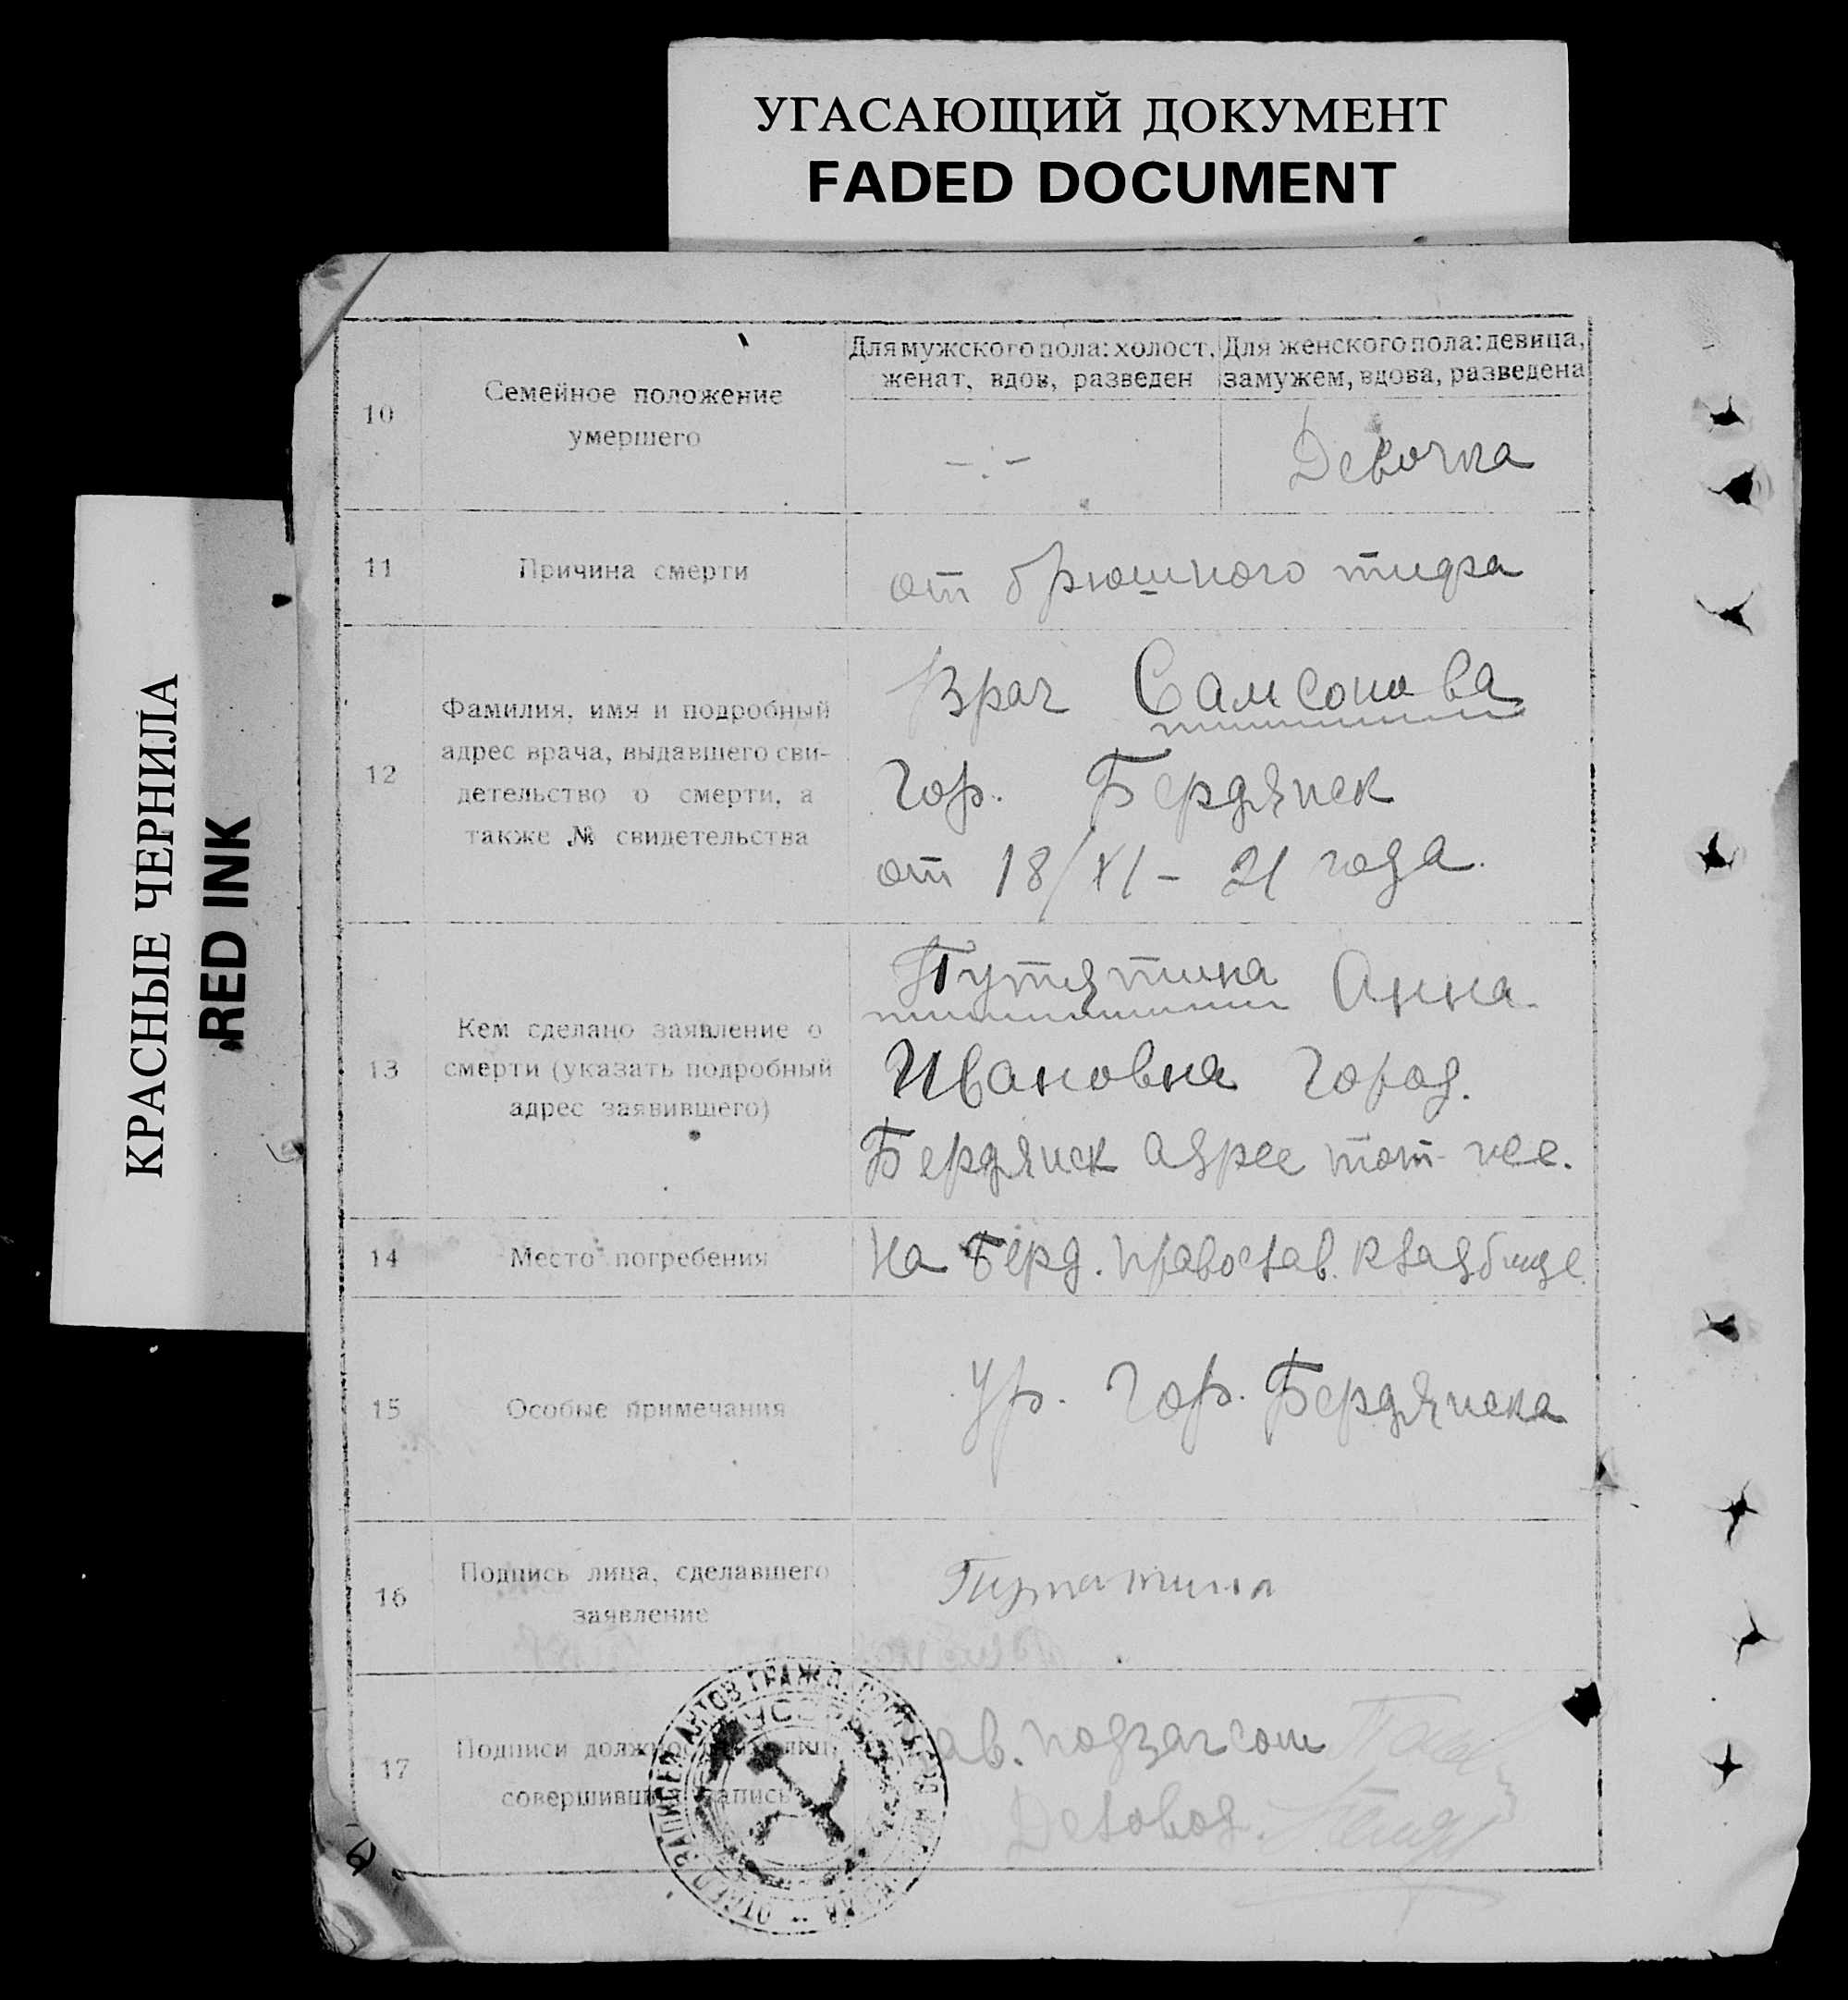 УГАСАЮЩИЙ ДОКУМЕНТ
FADED DOCUMENT
КРАСНЫЕ ЧЕРНИЛА
RED INK
10
Семейное положение
умершего
Для мужского пола: холост,
женат, вдов, разведен
Для женского пола: девица,
замужем, вдова, разведена
—·—
Девочка
11
Причина смерти
от брюшного тифа
12
Фамилия, имя и подробный
адрес врача, выдавшего сви-
детельство о смерти, а
также № свидетельства
Врач Самсонова
Гор. Бердянск
от 18/XI – 21 года.
13
Кем сделано заявление о
смерти (указать подробный
адрес заявившего)
Путятина Анна
Ивановна город.
Бердянск адрес тот-же.
14
Место погребения
На Берд. православ. кладбище
15
Особые примечания
Ур. Гор. Бердянска
16
Подпись лица, сделавшего
заявление
Путятина
17
Подписи должностных лиц,
совершивших запись
Зав. подзагсом
Деловод.
ОТДЕЛ ЗАПИСЕЙ АКТОВ ГРАЖДАНСКОГО
УССР